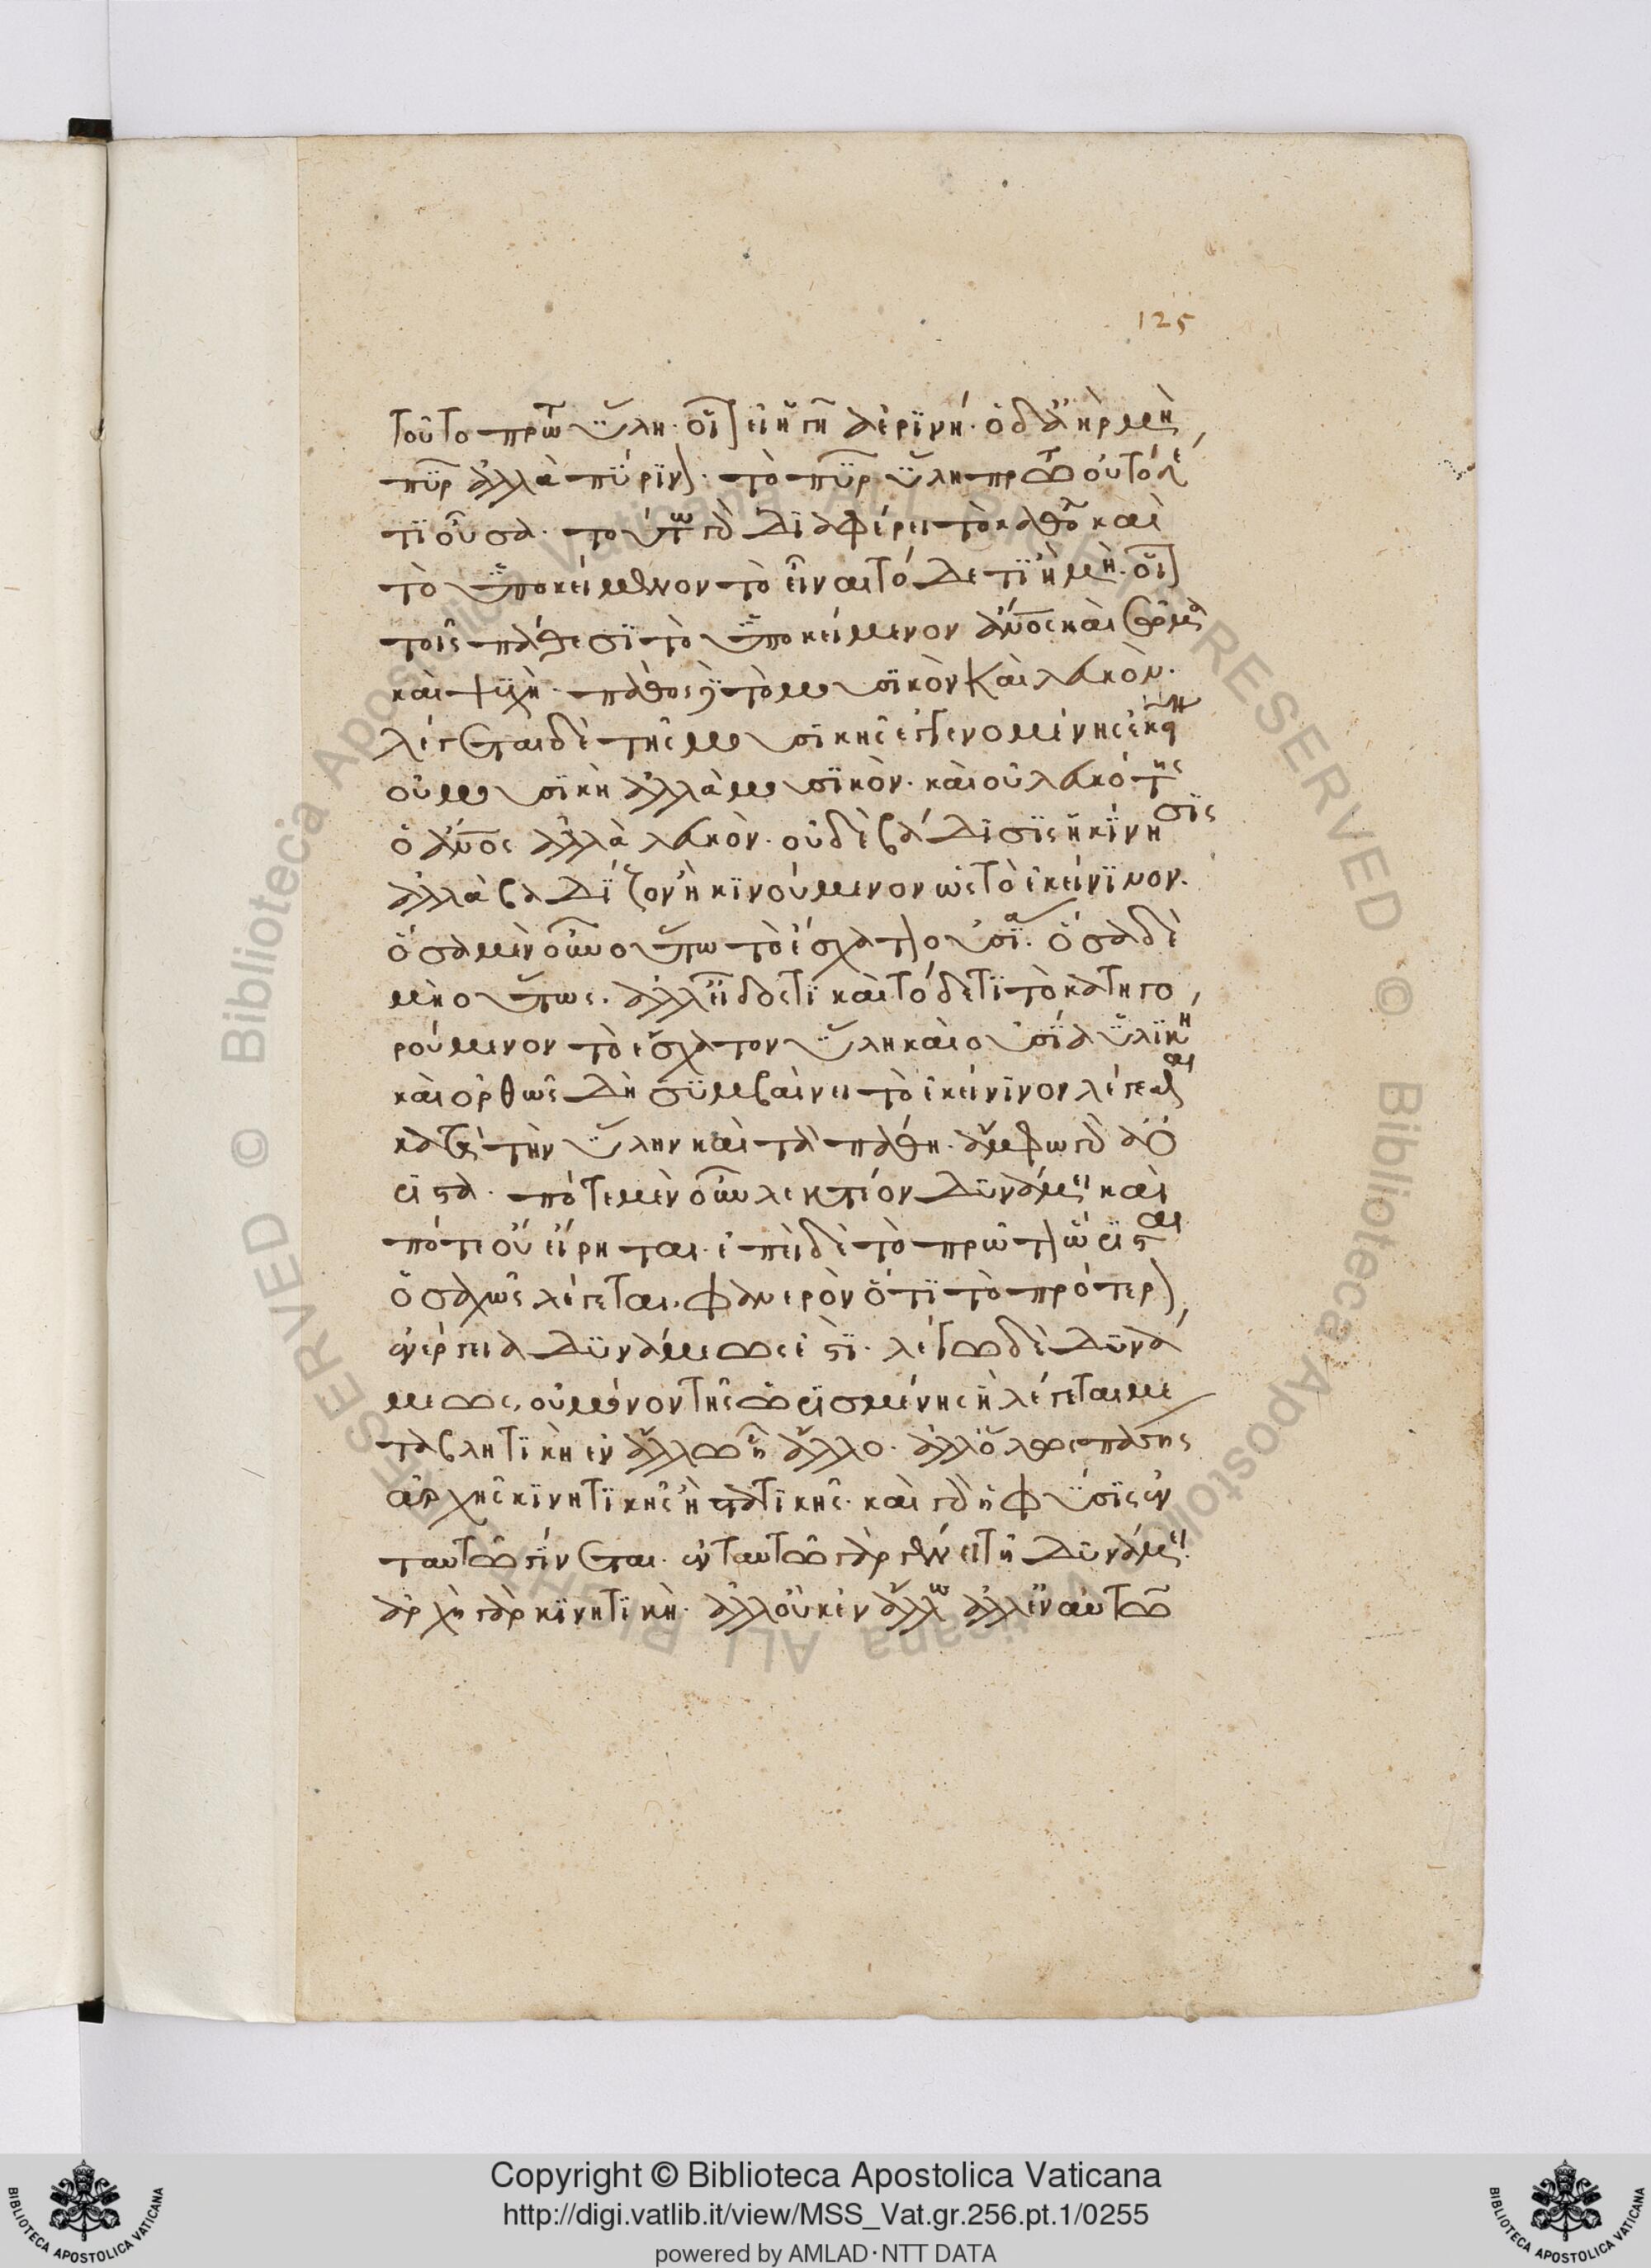 125
τοῦτο πρώτη ὕλη· οἷον εἰ ἡ γῆ ἀερίνη· ὁ δ' ἀὴρ μὴ
πῦρ ἀλλὰ πύρινος· τὸ πῦρ ὕλη πρώτη οὐ τόδε
τι οὖσα· τούτῳ γὰρ διαφέρει τὸ καθόλου καὶ
τὸ ὑποκείμενον τῷ εἶναι τόδε τι ἢ μή· οἷον
τοῖς πάθεσι τὸ ὑποκείμενον ἄνθρωπος καὶ σῶμα
καὶ ψυχή· πάθος δὲ τὸ μουσικὸν καὶ λευκόν·
λέγεται δὲ τῆς μουσικῆς ἐγγενομένης ἐκεῖνο
οὐ μουσικὴ ἀλλὰ μουσικόν· καὶ οὐ λευκότης
ὁ ἄνθρωπος ἀλλὰ λευκόν· οὐδὲ βάδισις ἢ κίνησις
ἀλλὰ βαδίζον ἢ κινούμενον ὡς τὸ ἐκείνινον·
ὅσα μὲν οὖν οὕτω τὸ ἔσχατον οὐσία· ὅσα δὲ
μὴ οὕτως· ἀλλ' εἶδός τι καὶ τόδε τι τὸ κατηγο
ρούμενον τὸ ἔσχατον ὕλη καὶ οὐσία ὑλική
καὶ ὀρθῶς δὴ συμβαίνει τὸ ἐκείνινον λέγεσθαι
κατὰ τὴν ὕλην καὶ τὰ πάθη· ἄμφω γὰρ ἀό
ριστα· πότε μὲν οὖν λεκτέον δυνάμει καὶ
πότε οὔ εἴρηται· ἐπεὶ δὲ τὸ πρῶτον ὥρισται
ὁσαχῶς λέγεται· φανερὸν ὅτι τὸ πρότερον
ἐνέργεια δυνάμεως ἐστι· λέγω δὲ δυνά
μεως, οὐ μόνον τῆς ὡρισμένης ἣ λέγεται με
ταβλητικὴ ἐν ἄλλῳ ἢ ἄλλο· ἀλλ' ὅλως πάσης
ἀρχῆς κινητικῆς ἢ στατικῆς· καὶ γὰρ ἡ φύσις ἐν
ταυτῷ γίνεται· ἐν ταυτῷ γὰρ γένει τῇ δυνάμει·
ἀρχὴ γὰρ κινητική· ἀλλ' οὐκ ἐν ἄλλῳ ἀλλ' ἐν αὐτῷ
Copyright © Biblioteca Apostolica Vaticana
http://digi.vatlib.it/view/MSS_Vat.gr.256.pt.1/0255
powered by AMLAD·NTT DATA